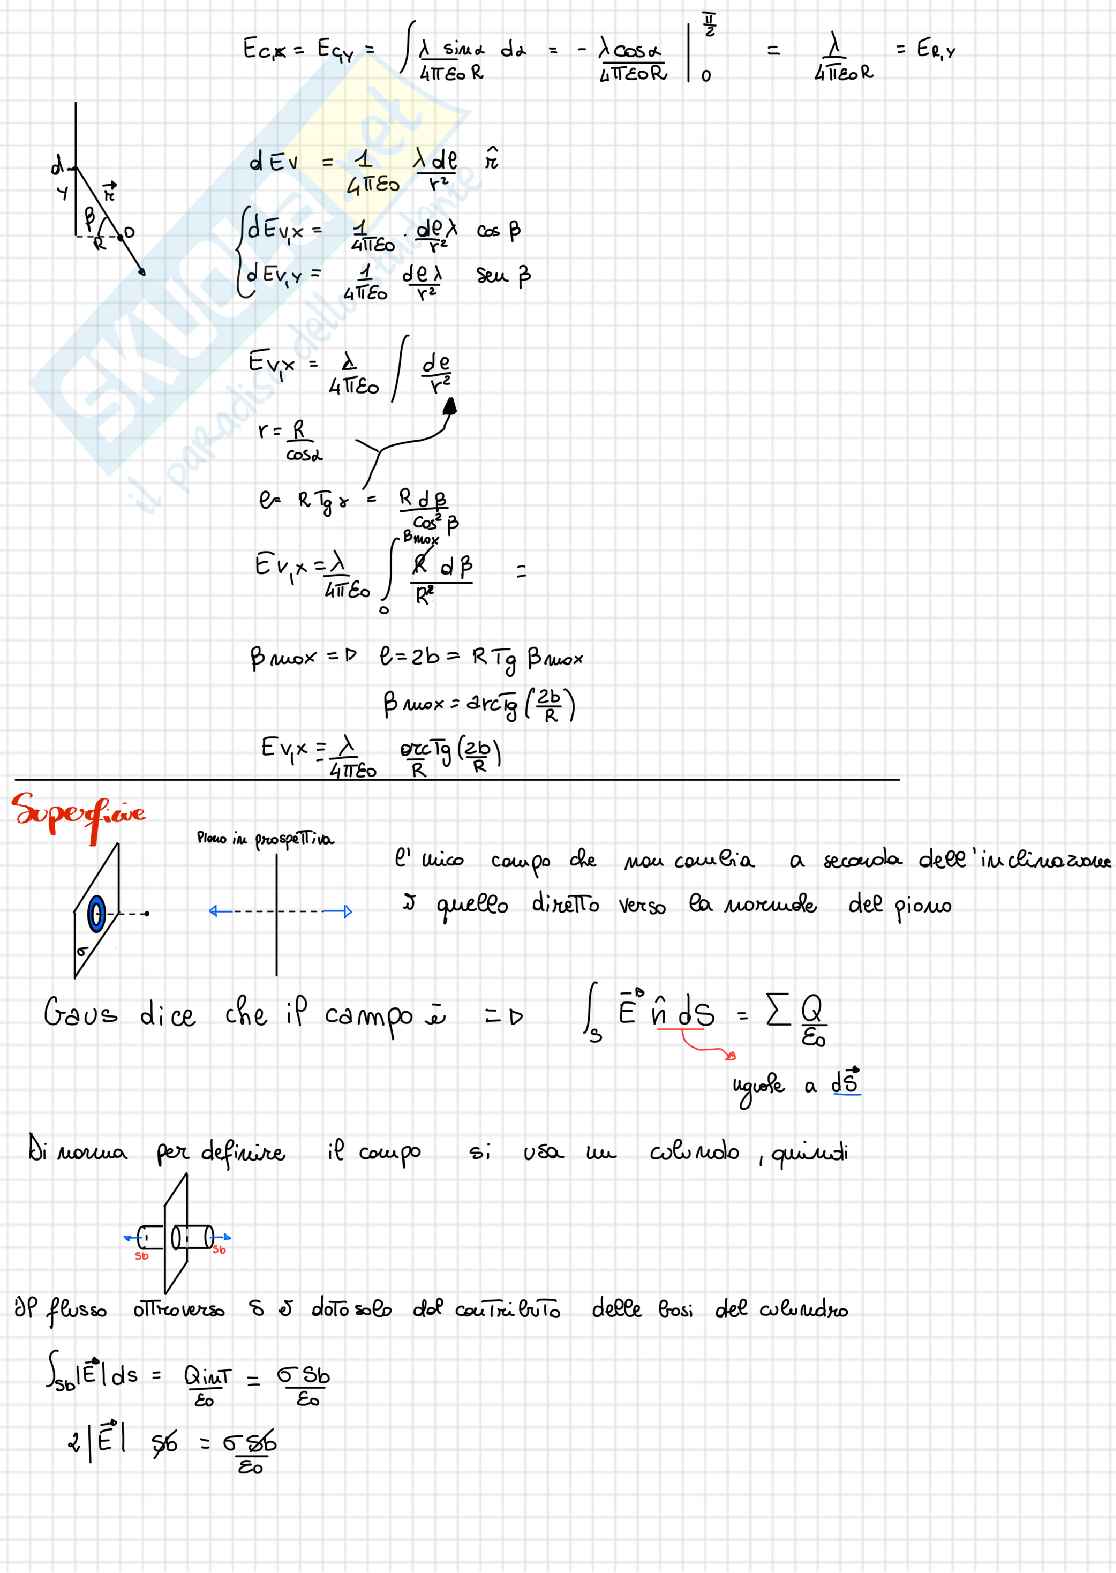 E_C,x = E_C,Y = ∫ λ sinα dα / 4πε0R = - λcosα / 4πε0R |_0^π/2 = λ / 4πε0R = E_R,Y
d
Y r⃗
β
R O
dEv = 1/4πε0 λdl/r² r̂
dEv,x = 1/4πε0 · dlλ/r² cos β
dEv,Y = 1/4πε0 dlλ/r² sen β
Ev,x = λ/4πε0 ∫ dl/r²
r = R/cosα
l= R Tg γ = R dβ / cos² β
Ev,x = λ/4πε0 ∫_0^βmax R dβ / R² =
βmax => l=2b = R Tg βmax
βmax = arcTg (2b/R)
Ev,x = λ/4πε0 arcTg/R (2b/R)
Superficie
Piano in prospettiva
l'unico campo che non cambia a seconda dell'inclinazione
è quello diretto verso la normale del piano
σ
Gaus dice che il campo è => ∫_S E⃗ n̂ dS = Σ Q/ε0
uguale a dS⃗
Di norma per definire il campo si usa un cilindro, quindi
Sb Sb
Il flusso attraverso S è dato solo dal contributo delle basi del cilindro
∫_Sb |E⃗| ds = Qint/ε0 = σ Sb/ε0
2|E⃗| Sb = σ Sb/ε0
SKUOLA.net
il paradiso dello studente